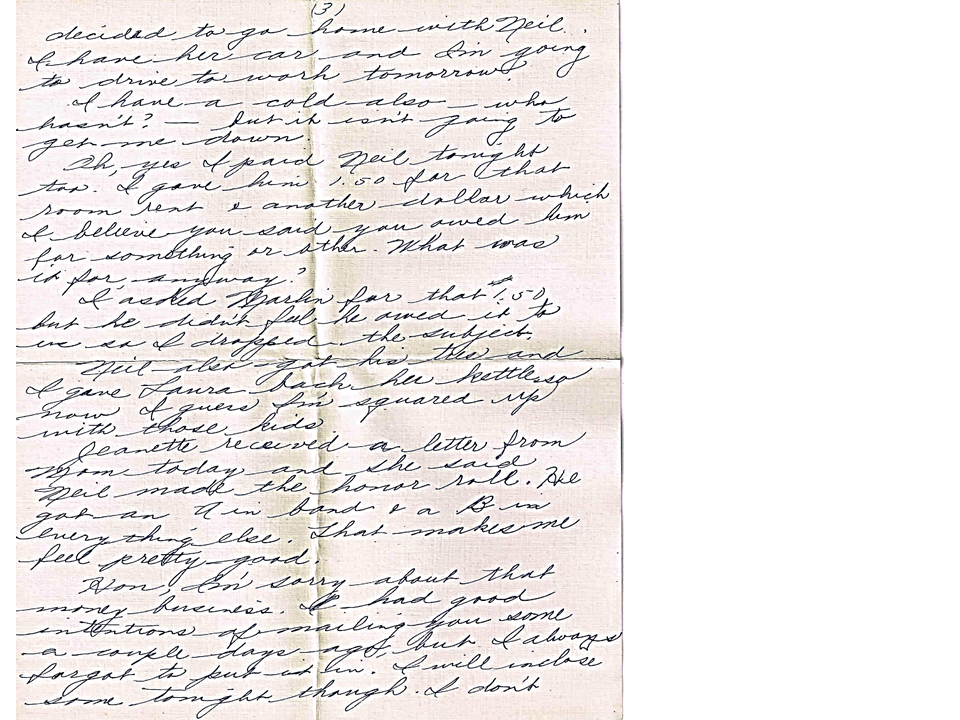 (3)
decided to go home with Neil.
I have her car and I'm going
to drive to work tomorrow.
I have a cold also — who
hasn't? — but it isn't going to
get me down.
Oh, yes I paid Neil tonight
too. I gave him 1.50 for that
room rent & another dollar which
I believe you said you owed him
for something or other. What was
it for, anyway?
I asked Marlin for that $1.50,
but he didn't feel he owed it to
us so I dropped the subject.
Neil also got his ties and
I gave Laura back her kettles so
now I guess I'm squared up
with those kids.
Jeanette received a letter from
Mom today and she said
Neil made the honor roll. He
got an A in band & a B in
everything else. That makes me
feel pretty good.
Hon, I'm sorry about that
money business. I had good
intentions of mailing you some
a couple days ago, but I always
forgot to put it in. I will inclose
some tonight though. I don't